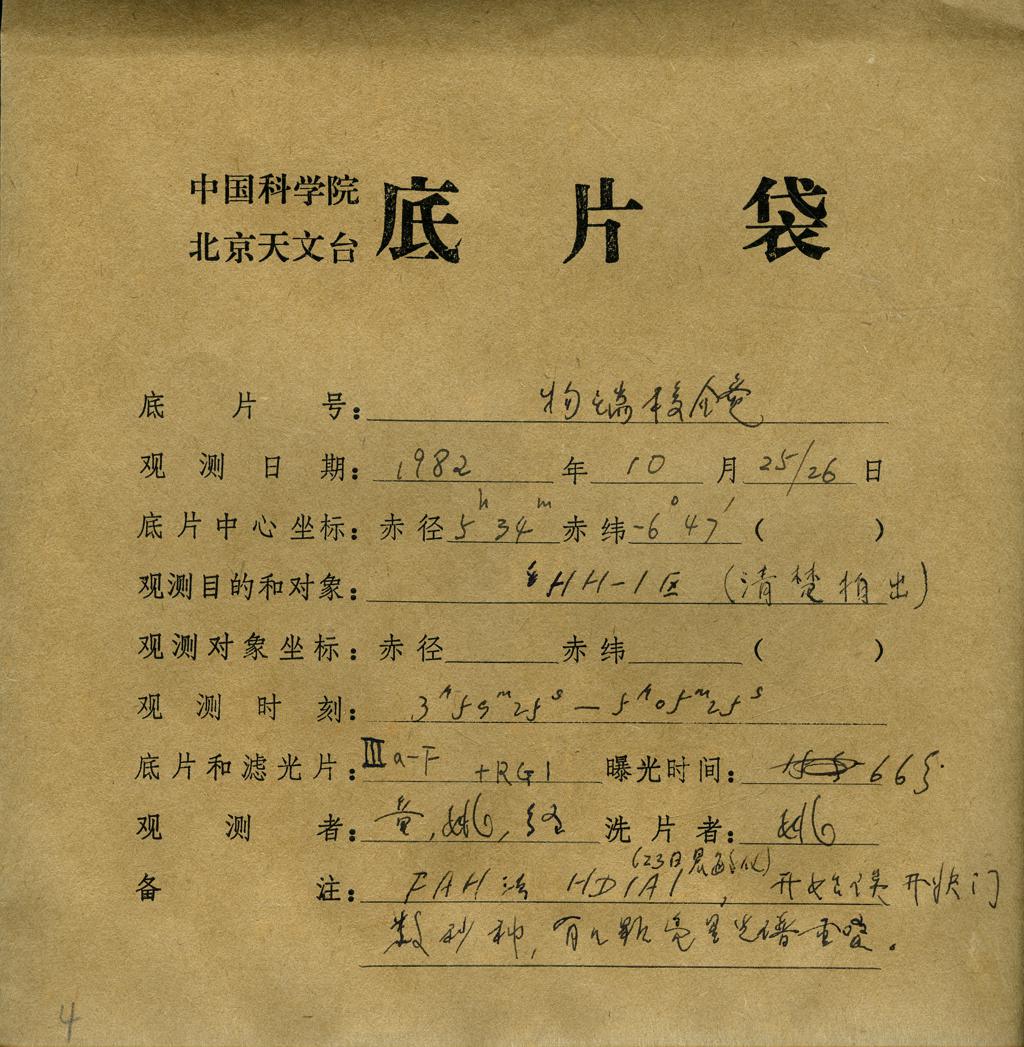 中国科学院
北京天文台 底片袋
底片号: 物端棱全竟
观测日期: 1982 年 10 月 25/26 日
底片中心坐标: 赤径 5h 34m 赤纬 -6° 47′ ( )
观测目的和对象: HH-1区 (清楚拍出)
观测对象坐标: 赤径 赤纬 ( )
观测时刻: 3h59m25s — 5h05m25s
底片和滤光片: IIIa-F +RG1 曝光时间: 66分
观测者: 童, 姚, 洗片者: 姚
(23日
备注: FAH法 HDIAI , 开始误开快门
数秒种, 有几颗亮星光谱重叠。
4